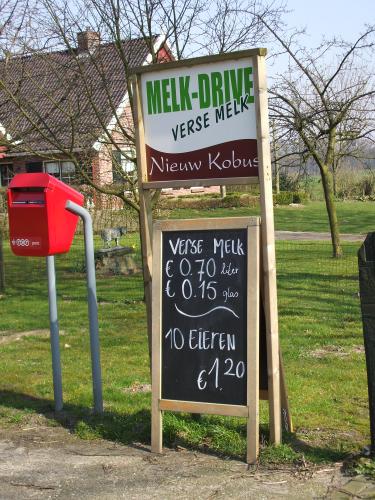 MELK-DRIVE
VERSE MELK
Nieuw Kobus
VERSE MELK
€ 0.70 liter
€ 0.15 glas
10 EIEREN
€ 1.20